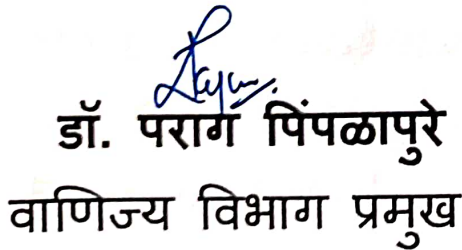 डॉ. पराग पिंपळापुरे
वाणिज्य विभाग प्रमुख